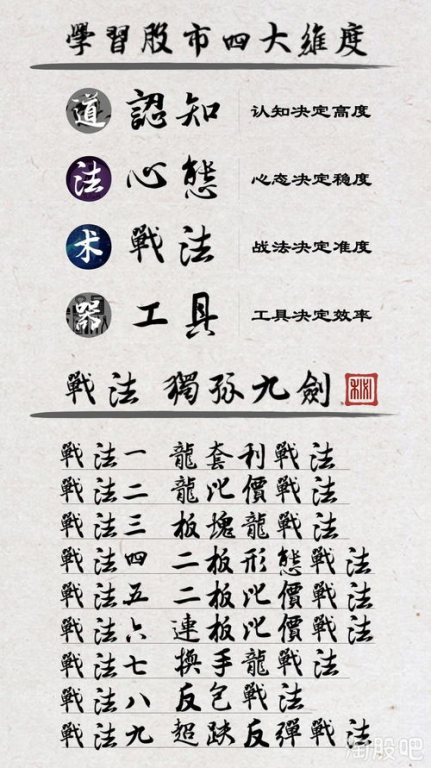 學習股市四大維度
道 認知 认知决定高度
法 心態 心态决定稳度
术 戰法 战法决定准度
器 工具 工具决定效率
戰法 獨孤九劍
戰法一 龍套利戰法
戰法二 龍比價戰法
戰法三 板塊龍戰法
戰法四 二板形態戰法
戰法五 二板比價戰法
戰法六 連板比價戰法
戰法七 換手龍戰法
戰法八 反包戰法
戰法九 超跌反彈戰法
淘股吧